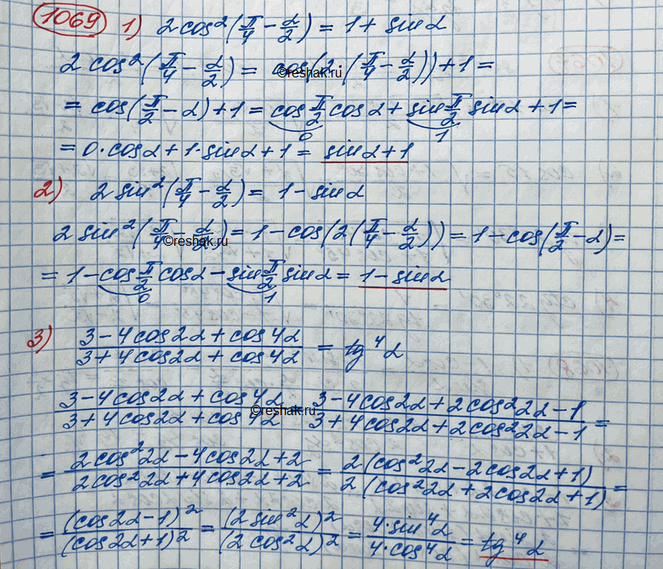 1069 1) 2cos²(π/4 − α/2) = 1 + sinα
2cos²(π/4 − α/2) = cos(2·(π/4 − α/2)) + 1 =
©reshak.ru
= cos(π/2 − α) + 1 = cos π/2 cosα + sin π/2 sinα + 1 =
0 1
= 0·cosα + 1·sinα + 1 = sinα + 1
2) 2sin²(π/4 − α/2) = 1 − sinα
2sin²(π/4 − α/2) = 1 − cos(2(π/4 − α/2)) = 1 − cos(π/2 − α) =
©reshak.ru
= 1 − cos π/2 cosα − sin π/2 sinα = 1 − sinα
0 1
3) (3 − 4cos2α + cos4α)/(3 + 4cos2α + cos4α) = tg⁴α
(3 − 4cos2α + cos4α)/(3 + 4cos2α + cos4α) (3 − 4cos2α + 2cos²2α − 1)/(3 + 4cos2α + 2cos²2α − 1) =
©reshak.ru
= (2cos²2α − 4cos2α + 2)/(2cos²2α + 4cos2α + 2) = 2(cos²2α − 2cos2α + 1)/2(cos²2α + 2cos2α + 1) =
= (cos2α − 1)²/(cos2α + 1)² = (2sin²α)²/(2cos²α)² = 4·sin⁴α/4·cos⁴α = tg⁴α